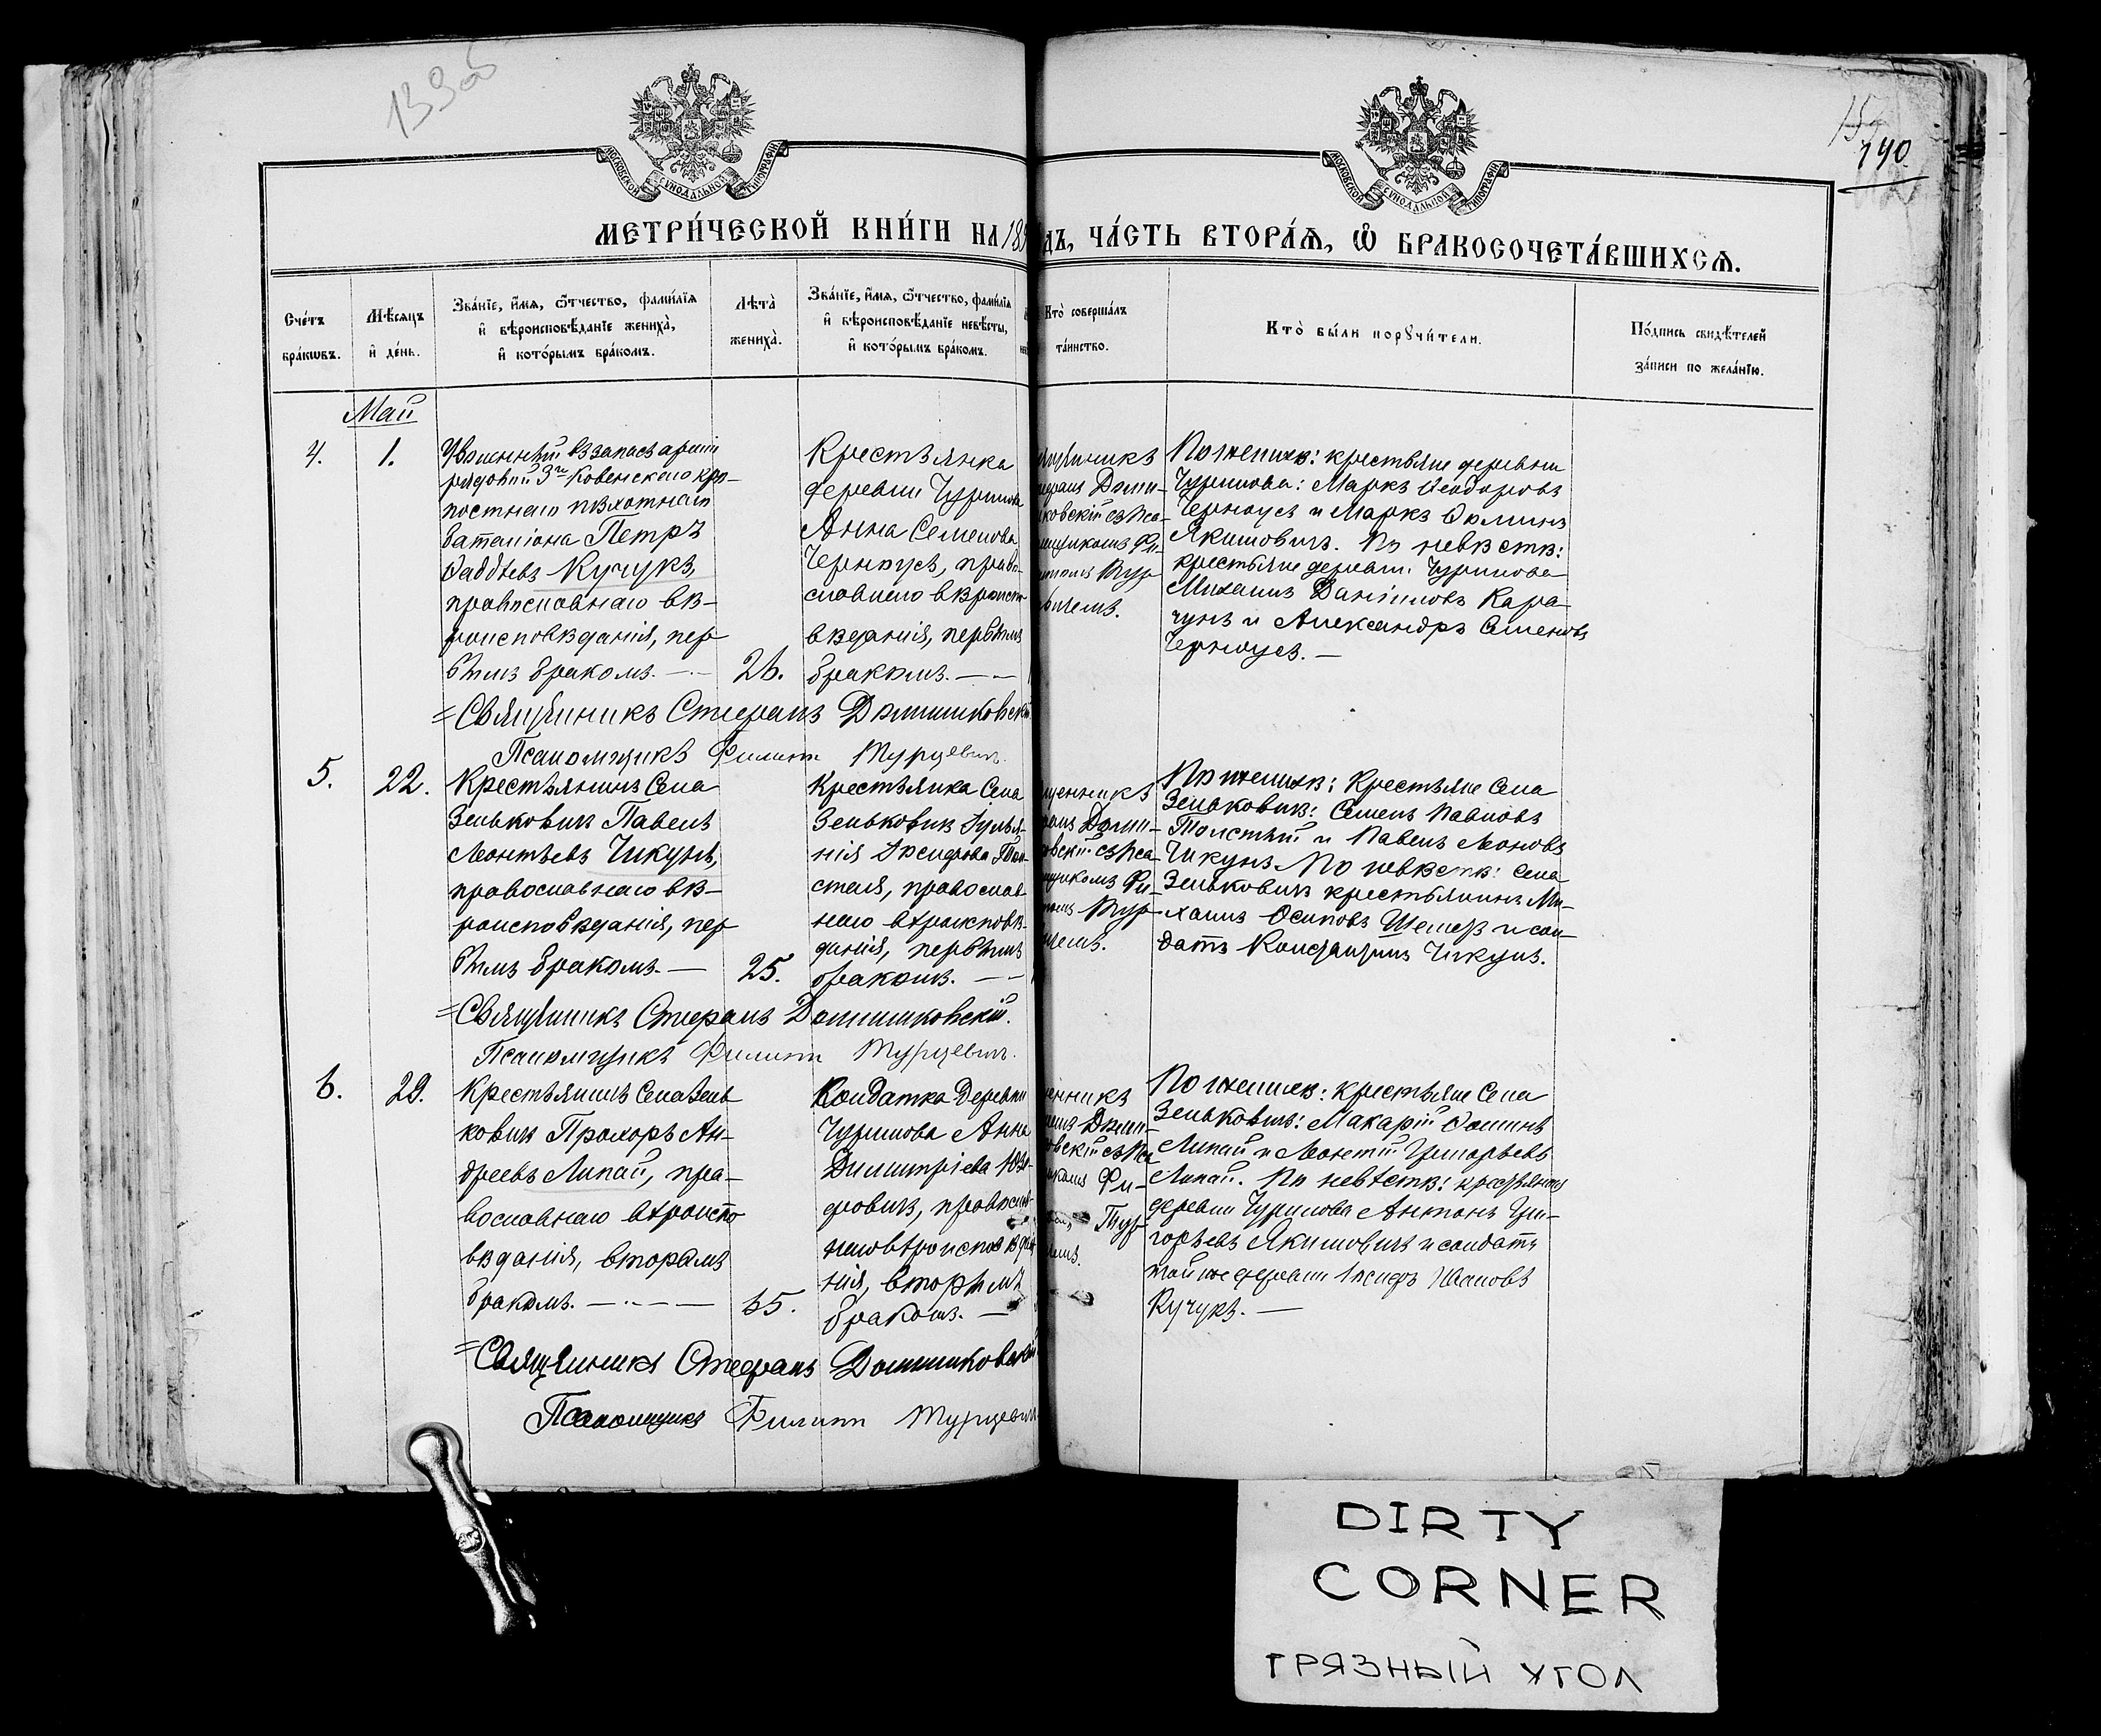 139об
15
140
МОСКОВСКОЙ СУНОДАЛЬНОЙ ТИПОГРАФІИ
МОСКОВСКОЙ СУНОДАЛЬНОЙ ТИПОГРАФІИ
МЕТРИ́ЧЕСКОЙ КНИ́ГИ НА 189
дъ, ЧА́СТЬ ВТОРА́Я, Ѽ БРАКОСОЧЕТА́ВШИХСЯ.
Сче́тъ бра́кѡвъ.
Мѣ́сяцъ и҆ де́нь.
Зва́нїе, и҆́мя, ѻ҆́тчество, фами́лїя
и҆ вѣроисповѣ́данїе жениха̀,
и҆ кото́рымъ бра́комъ.
Лѣта̀ жениха̀.
Зва́нїе, и҆́мя, ѻ҆́тчество, фами́лїя
и҆ вѣроисповѣ́данїе невѣ́сты,
и҆ кото́рымъ бра́комъ.
Кто̀ соверша́лъ
та́инство.
Кто̀ бы́ли порꙋчи́тели.
По́дпись свидѣ́телей
за́писи по жела́нїю.
Май
4.
1.
Уволенный въ запасъ арміи
рядовый 3го Ковенскаго крѣ-
постнаго пѣхотнаго
баталіона Петръ
Ѳаддѣевъ Кучукъ,
православнаго вѣ-
роисповѣданія, пер
вымъ бракомъ. —
26.
Крестьянка
деревни Чурилова
Анна Семенова
Черноусъ, право-
славнаго вѣроиспо
вѣданія, первымъ
бракомъ. — —
щенникъ
ефанъ Доми-
ковскій съ пса-
мщикомъ Фи-
Тур
вичемъ.
По женихѣ: крестьяне деревни
Чурилова: Маркъ Ѳеодоровъ
Черноусъ и Маркъ Ѳоминъ
Якимовичъ. По невѣстѣ:
крестьяне деревни Чурилова
Михаилъ Даніиловъ Кара-
чунъ и Александръ Семеновъ
Черноусъ. —
=Священникъ Стефанъ Домишковскій
Псаломщикъ Филиппъ Турцевичъ.
5.
22.
Крестьянинъ Села
Зельковичъ Павелъ
Леонтьевъ Чикунъ,
православнаго вѣ-
роисповѣданія, пер
вымъ бракомъ. —
25.
Крестьянка Села
Зельковичъ Іульа-
нія Іосифова Тол-
стая, православ
наго вѣроисповѣ-
данія, первымъ
бракомъ. — —
щенникъ
фанъ Доми-
овскій съ пса-
щикомъ Фи-
Тур
ичемъ.
По женихѣ: Крестьяне Села
Зельковичъ: Семенъ Павловъ
Толстый и Павелъ
Чикунъ. По невѣстѣ: Села
Зельковичъ крестьянинъ Ми-
хаилъ Осиповъ Шемезъ и сол-
датъ Чикунъ.
=Священникъ Стефанъ Домишковскій.
Псаломщикъ Филиппъ Турцевичъ.
6.
29.
Крестьянинъ Села Зель
ковичъ Прохоръ Ан-
дреевъ Липай, пра-
вославнаго вѣроиспо
вѣданія, вторымъ
бракомъ. —·—·—
65.
Солдатка Деревни
Чурилова Анна
Димитріева Юзе-
фовичъ, православ-
наго вѣроисповѣда
нія, вторымъ
бракомъ. —
енникъ
Доми-
овскій съ пса
Фи-
Тур
По женихѣ: крестьяне Села
Зельковичъ: Макарій Ѳоминъ
Липай и Леонтій Григорьевъ
Липай. По невѣстѣ: крестьянинъ
деревни Чурилова Антонъ Гри-
горьевъ Якимовичъ и солдатъ
той же деревни Іосифъ Ивановъ
Кучукъ. —
=Священникъ Стефанъ Домишковскій
Псаломщикъ Филиппъ Турцевичъ
DIRTY
CORNER
ГРЯЗНЫЙ УГОЛ